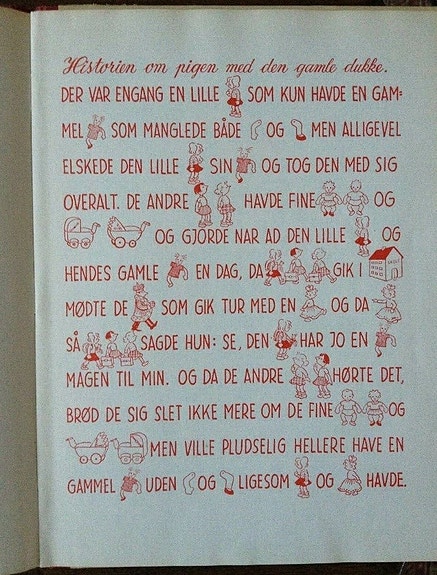 Historien om pigen med den gamle dukke.
DER VAR ENGANG EN LILLE SOM KUN HAVDE EN GAM=
MEL SOM MANGLEDE BÅDE OG MEN ALLIGEVEL
ELSKEDE DEN LILLE SIN OG TOG DEN MED SIG
OVERALT. DE ANDRE HAVDE FINE OG
OG GJORDE NAR AD DEN LILLE OG
HENDES GAMLE EN DAG, DA GIK I
MØDTE DE SOM GIK TUR MED EN OG DA
SÅ SAGDE HUN: SE, DEN HAR JO EN
MAGEN TIL MIN. OG DA DE ANDRE HØRTE DET,
BRØD DE SIG SLET IKKE MERE OM DE FINE OG
MEN VILLE PLUDSELIG HELLERE HAVE EN
GAMMEL UDEN OG LIGESOM OG HAVDE.